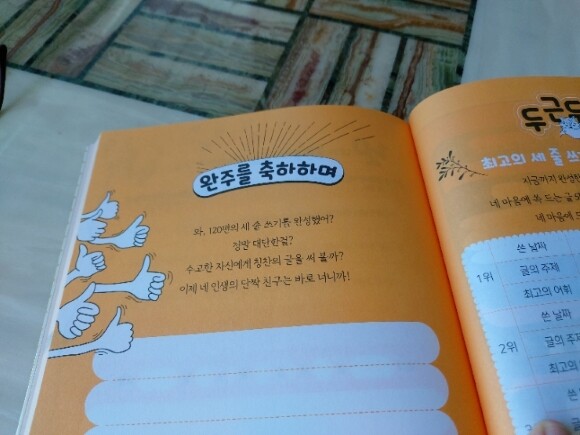 완주를 축하하며
와, 120편의 세 줄 쓰기를 완성했어?
정말 대단한걸?
수고한 자신에게 칭찬의 글을 써 볼까?
이제 네 인생의 단짝 친구는 바로 너니까!
두근
최고의 세 줄 쓰
지금까지 완성한
네 마음에 쏙 드는 글
네 마음에
쓴 날짜
1위
글의 주제
최고의 어휘
쓴 날짜
2위
글의 주제
최고의
쓴
3